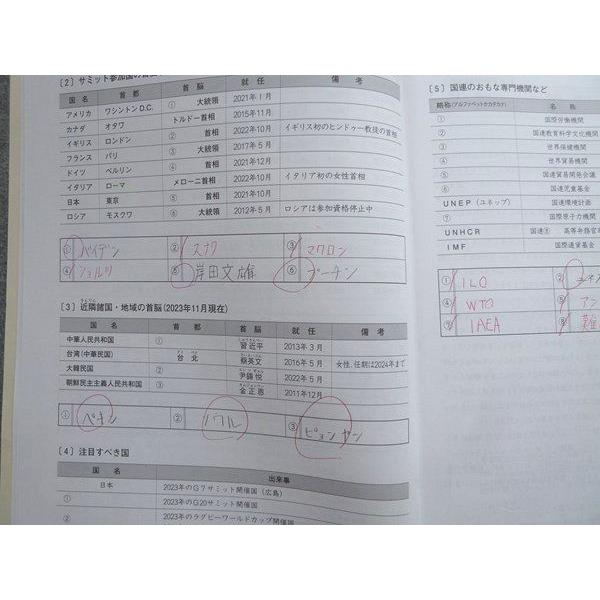 〔2〕サミット参加国の首脳
国 名 首 都 首 脳 就 任 備 考
アメリカ ワシントンD.C. ① 大統領 2021年1月
カナダ オタワ トルドー首相 2015年11月
イギリス ロンドン ② 首相 2022年10月 イギリス初のヒンドゥー教徒の首相
フランス パリ ③ 大統領 2017年5月
ドイツ ベルリン ④ 首相 2021年12月
イタリア ローマ メローニ首相 2022年10月 イタリア初の女性首相
日本 東京 ⑤ 首相 2021年10月
ロシア モスクワ ⑥ 大統領 2012年5月 ロシアは参加資格停止中
① バイデン ② スナク ③ マクロン
④ ショルツ ⑤ 岸田文雄 ⑥ プーチン
〔3〕近隣諸国・地域の首脳(2023年11月現在)
国 名 首 都 首 脳 就 任 備 考
中華人民共和国 ① 習近平 2013年3月
台湾(中華民国) 台北 蔡英文 2016年5月 女性、任期は2024年まで
大韓民国 ② 尹錫悦 2022年5月
朝鮮民主主義人民共和国 ③ 金正恩 2011年12月
① ペキン ② ソウル ③ ピョンヤン
〔4〕注目すべき国
国 名 出来事
日本 2023年のG7サミット開催国(広島)
① 2023年のG20サミット開催国
② 2023年のラグビーワールドカップ開催国
〔5〕国連のおもな専門機関など
略称(アルファベットかカタカナ) 名 称
① 国際労働機関
② 国連教育科学文化機関
③ 世界保健機関
④ 世界貿易機関
⑤ 国連貿易開発会議
⑥ 国連児童基金
UNEP(ユネップ) 国連環境計画
⑦ 国際原子力機関
UNHCR 国連⑧ 高等弁務官事
IMF 国際通貨基金
① ILO ② ユネス
④ WTO ⑤ アン
⑦ IAEA ⑧ 難